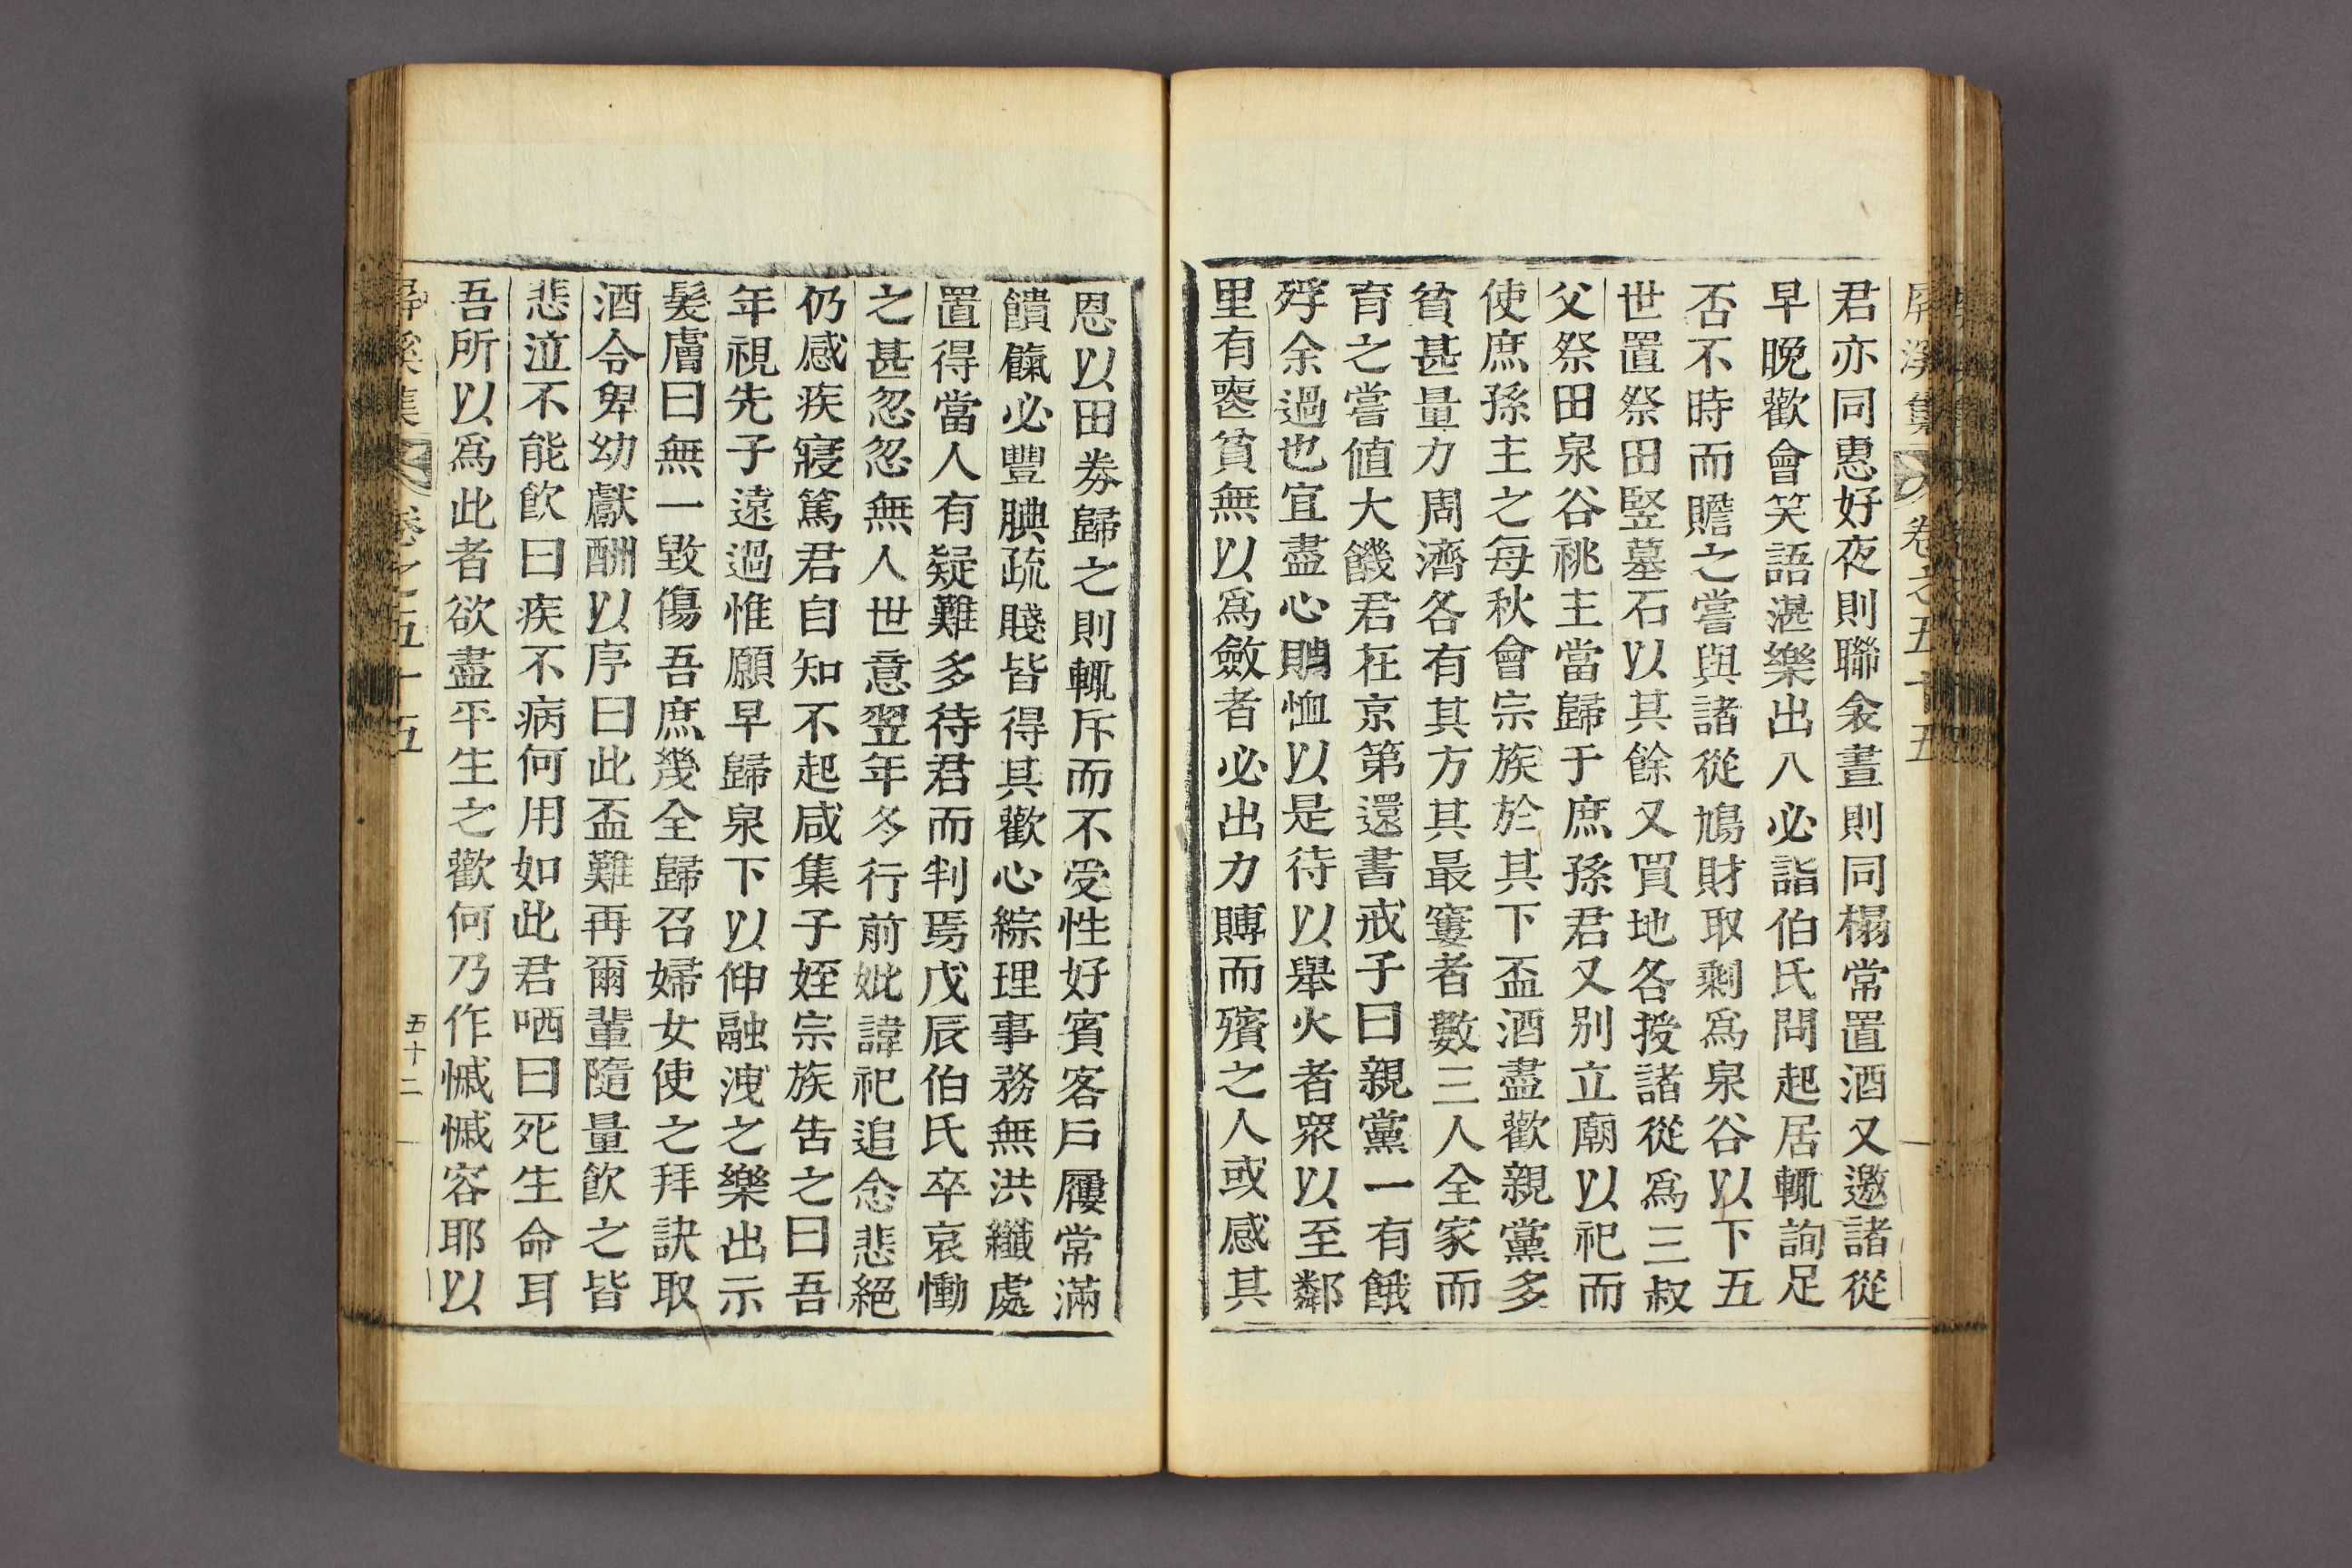 屛溪集 卷之五十五
君亦同惠好夜則聯衾晝則同榻常置酒又邀諸從
早晩歡會笑語湛樂出入必詣伯氏問起居輒詢足
否不時而贍之嘗與諸從鳩財取剩爲泉谷以下五
世置祭田竪墓石以其餘又買地各授諸從爲三叔
父祭田泉谷祧主當歸于庶孫君又別立廟以祀而
使庶孫主之每秋會宗族於其下盃酒盡歡親黨多
貧甚量力周濟各有其方其最窶者數三人全家而
育之嘗値大饑君在京第還書戒子曰親黨一有餓
殍余過也宜盡心賙恤以是待以擧火者衆以至鄰
里有喪貧無以爲斂者必出力賻而殯之人或感其
恩以田劵歸之則輒斥而不受性好賓客戶屨常滿
饋餼必豐腆疏賤皆得其歡心綜理事務無洪纖處
置得當人有疑難多待君而判焉戊辰伯氏卒哀慟
之甚忽忽無人世意翌年冬行前妣諱祀追念悲絕
仍感疾寢篤君自知不起咸集子姪宗族告之曰吾
年視先子遠過惟願早歸泉下以伸融洩之樂出示
髮膚曰無一毀傷吾庶幾全歸召婦女使之拜訣取
酒令卑幼獻酬以序曰此盃難再爾輩隨量飮之皆
悲泣不能飮曰疾不病何用如此君哂曰死生命耳
吾所以爲此者欲盡平生之歡何乃作慽慽容耶以
屛溪集 卷之五十五 五十二